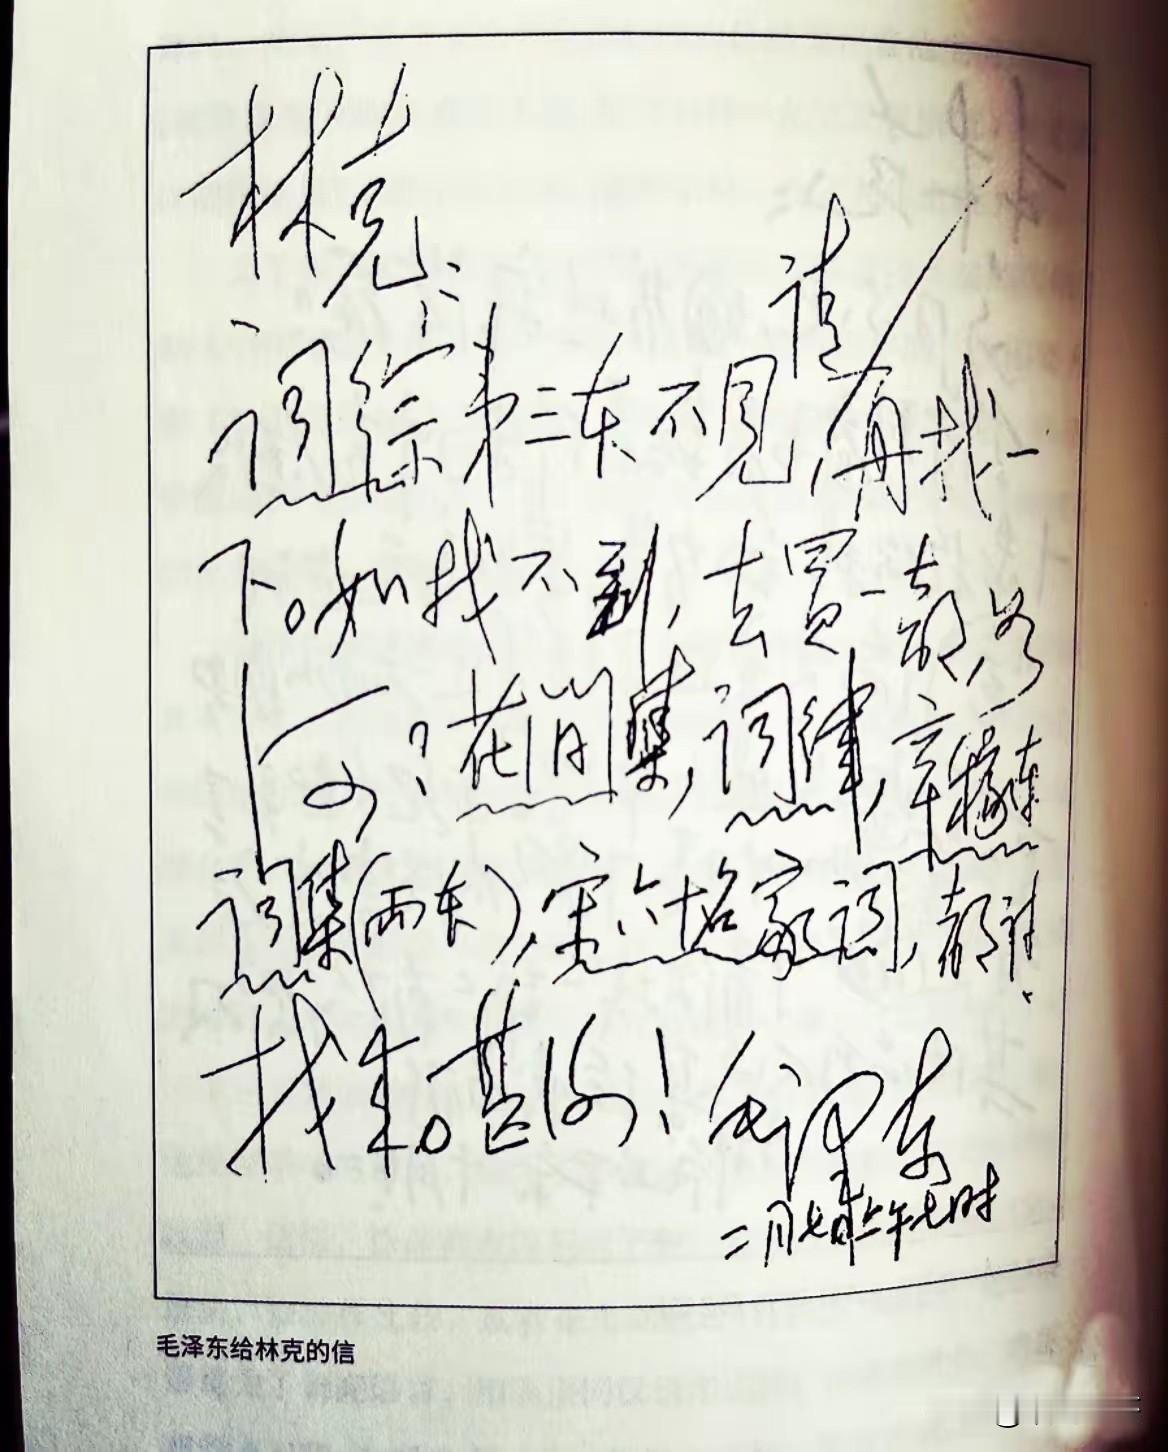 林克：
词综第三本不见，请再找一
下。如找不到，去买一部，如
何？花间集，词律，辛稼轩
词集（两本），宋六十名家词，都请
找来。甚盼！毛泽东
二月七日上午七时
毛泽东给林克的信